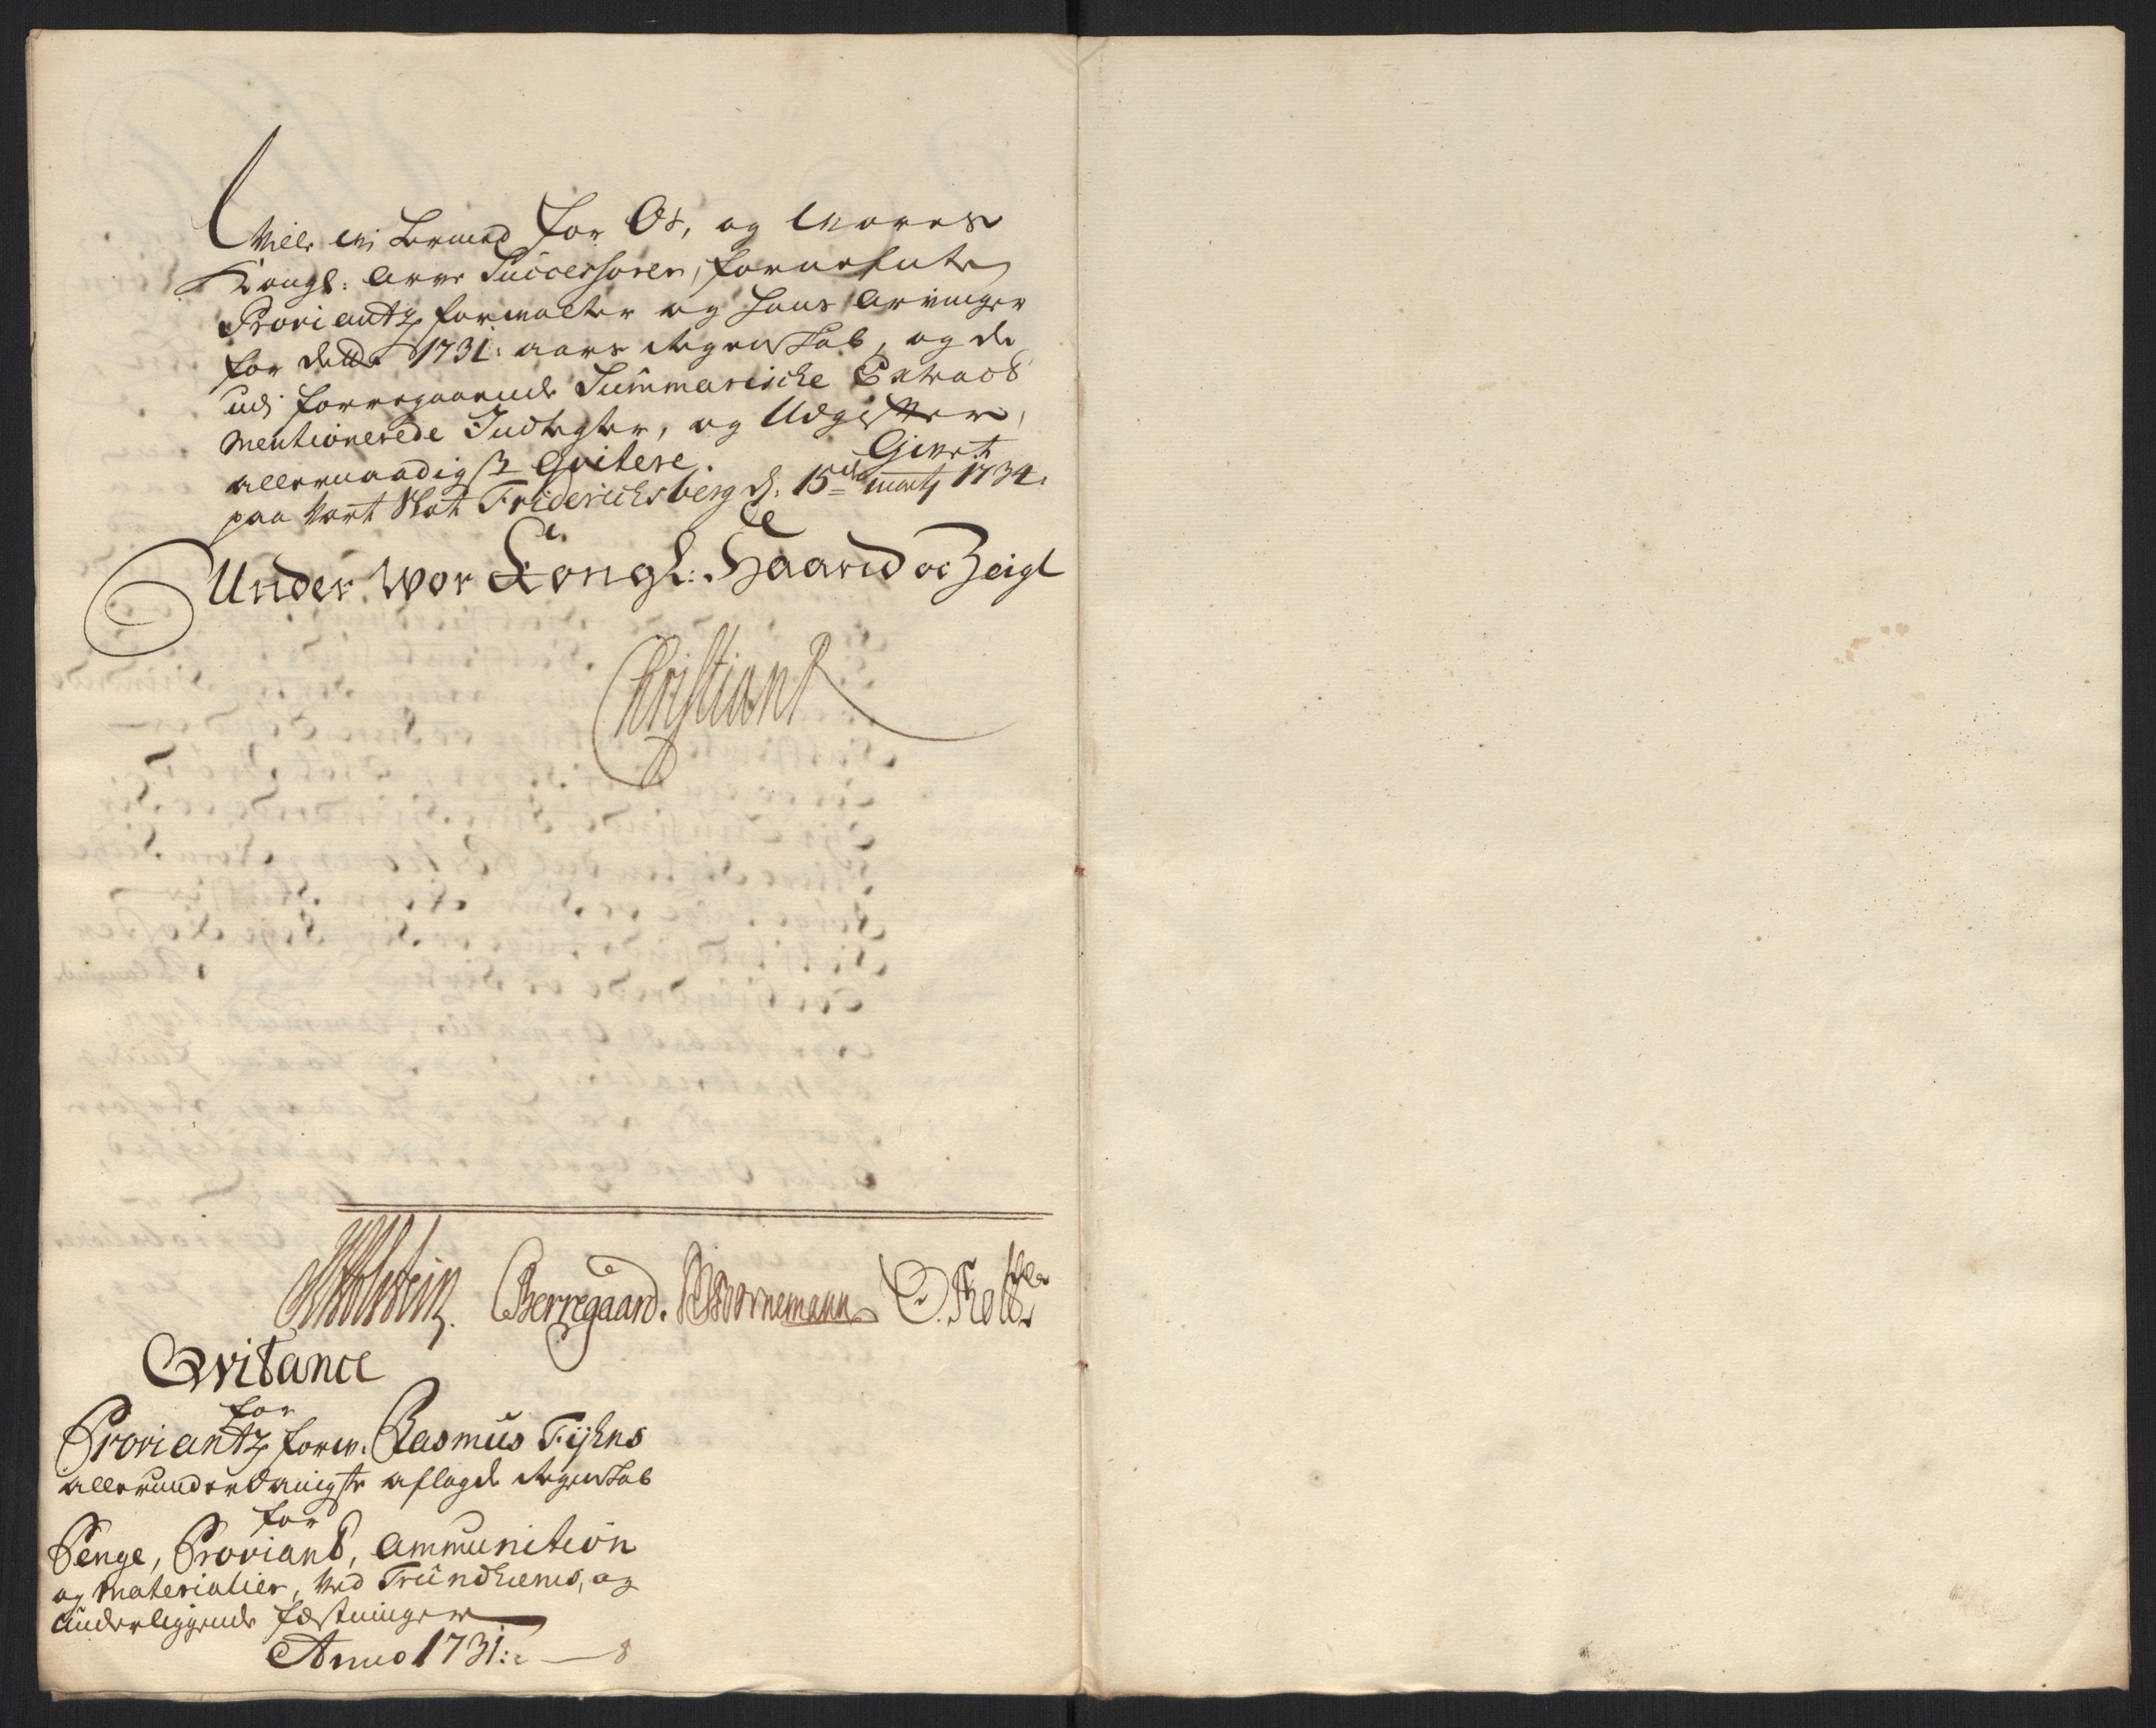 Ville Wi hermed for Os, og Vores
Kongl: Arve Successorer, fornefnte
Proviantz forvalter og hans Arvinger
for dette 1731: aars Regenskab, og de
udj forregaaende Summariske Extract
mentionerede Indtegter, og Udgifter,
allernaadigst Qvitere. Givet
paa Vort Slot Friderichsberg d: 15de marty 1734.
Under Vor Kongl: Haand oc Zeigl
Christian R
JHolstein. Berregaard. Bornemann
Qvitance
for
Proviantz forv. Rasmus Fyhns
allerunderdanigste aflagde Regenskab
for
Penge, Proviant, Ammunition
og Materialier, ved Trundhiems, og
underliggende Fæstninger
Anno 1731: